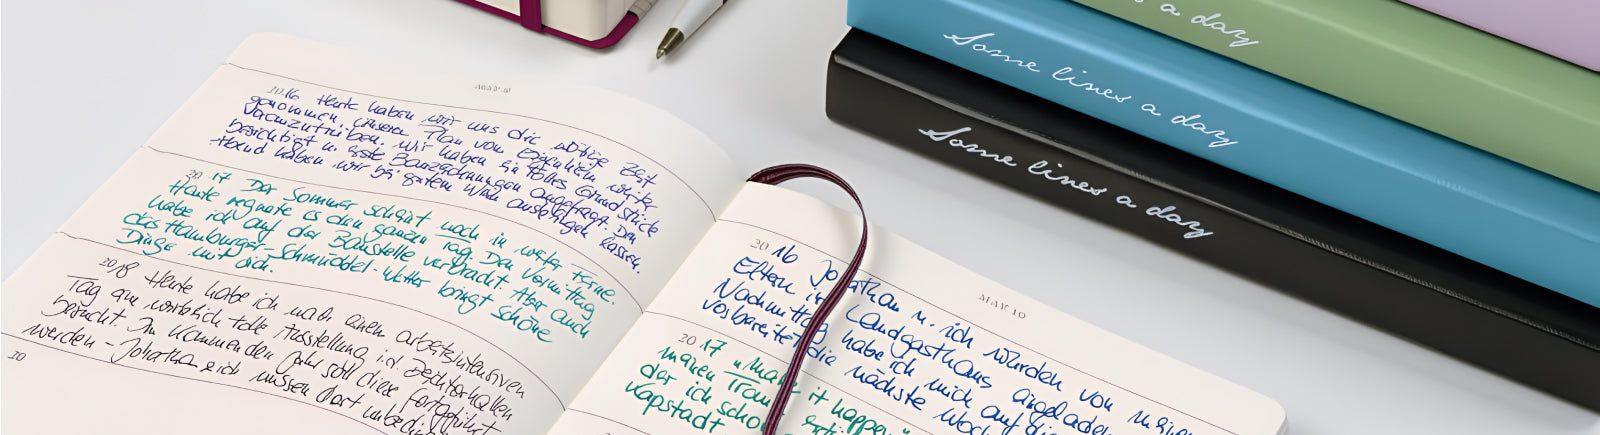 2016 Heute haben wir uns die nötige Zeit
genommen, unseren Plan vom Eigenheim weiter
voranzutreiben. Wir haben ein tolles Grundstück
besichtigt u. erste Bauzeichnungen angefragt. Den
Abend haben wir bei gutem Wein ausklingen lassen.
2017 Der Sommer scheint noch in weiter Ferne.
Heute regnete es den ganzen Tag. Den Vormittag
habe ich auf der Baustelle verbracht. Aber auch
das Hamburger-Schmuddel-Wetter bringt schöne
Dinge mit sich.
2018 Heute habe ich nach einem arbeitsintensiven
Tag eine wirklich tolle Ausstellung i.d. Deichtorhallen
besucht. Im kommenden Jahr soll diese fortgeführt
werden - Jonathan & ich müssen dort
20
MAY 10
2016 Jonathan u. ich wurden von meinen
Eltern ins Landgasthaus eingeladen
Nachmittag habe ich mich auf die
vorbereitet die nächste Woche
2017 "Make it happen"
meinen Traum
der ich schon
Kapstadt
Some lines a day
Some lines a day
s a day